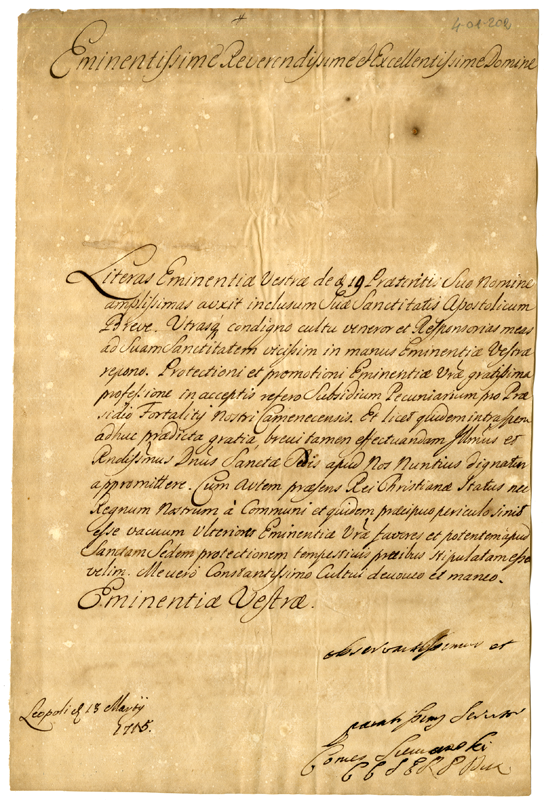 4-01-202
Eminentissime Reverendissime et Excellentissime Domine
Literas Eminentiæ Vestræ de d 19 Præteriti Suo Nomine
amplissimas auxit inclusum Suæ Sanctitatis Apostolicum
Breve. Utrasq condigno cultu veneror et Responsorias meas
ad Suam Sanctitatem vicissim in manus Eminentiæ Vestræ
repono. Protectioni et promotioni Eminentiæ Vræ gratissima
professione in acceptis refero Subsidium Pecuniarium pro Præ
sidio Fortality Nostri Camenecensis. Et licet quidem intra spem
adhuc prædicta gratia, brevi tamen effectuandam Illmus et
Rndissimus Dnus Sanctæ Sedis apud Nos Nuntius dignatur
appromittere. Cum Autem præsens Rei Christianæ Status nec
Regnum Nostrum à Communi et quidem præcipuo periculo sinit
esse vacuum Ulteriores Eminentiæ Vræ favores et potentem apud
Sanctam Sedem protectionem tempestivis precibus stipulatam esse
velim. Me verò Constantissimo Cultui devoveo et maneo.
Eminentiæ Vestræ.
observantissimus et
Leopoli d 13 Martÿ
1715.
paratissimus Servus
Comes Sieniawski